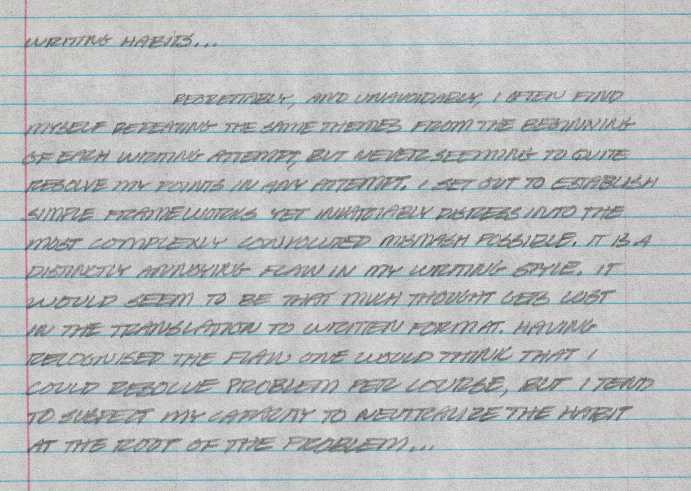 WRITING HABITS...
REGRETTABLY, AND UNAVOIDABLY, I OFTEN FIND
MYSELF REPEATING THE SAME THEMES FROM THE BEGINNING
OF EACH WRITING ATTEMPT, BUT NEVER SEEMING TO QUITE
RESOLVE MY POINTS IN ANY ATTEMPT. I SET OUT TO ESTABLISH
SIMPLE FRAMEWORKS YET INVARIABLY DIGRESS INTO THE
MOST COMPLEXLY CONVOLUTED MISMASH POSSIBLE. IT IS A
DISTINCTLY ANNOYING FLAW IN MY WRITING STYLE. IT
WOULD SEEM TO BE THAT MUCH THOUGHT GETS LOST
IN THE TRANSLATION TO WRITTEN FORMAT. HAVING
RECOGNISED THE FLAW ONE WOULD THINK THAT I
COULD RESOLVE PROBLEM PER COURSE, BUT I TEND
TO SUSPECT MY CAPACITY TO NEUTRALIZE THE HABIT
AT THE ROOT OF THE PROBLEM...